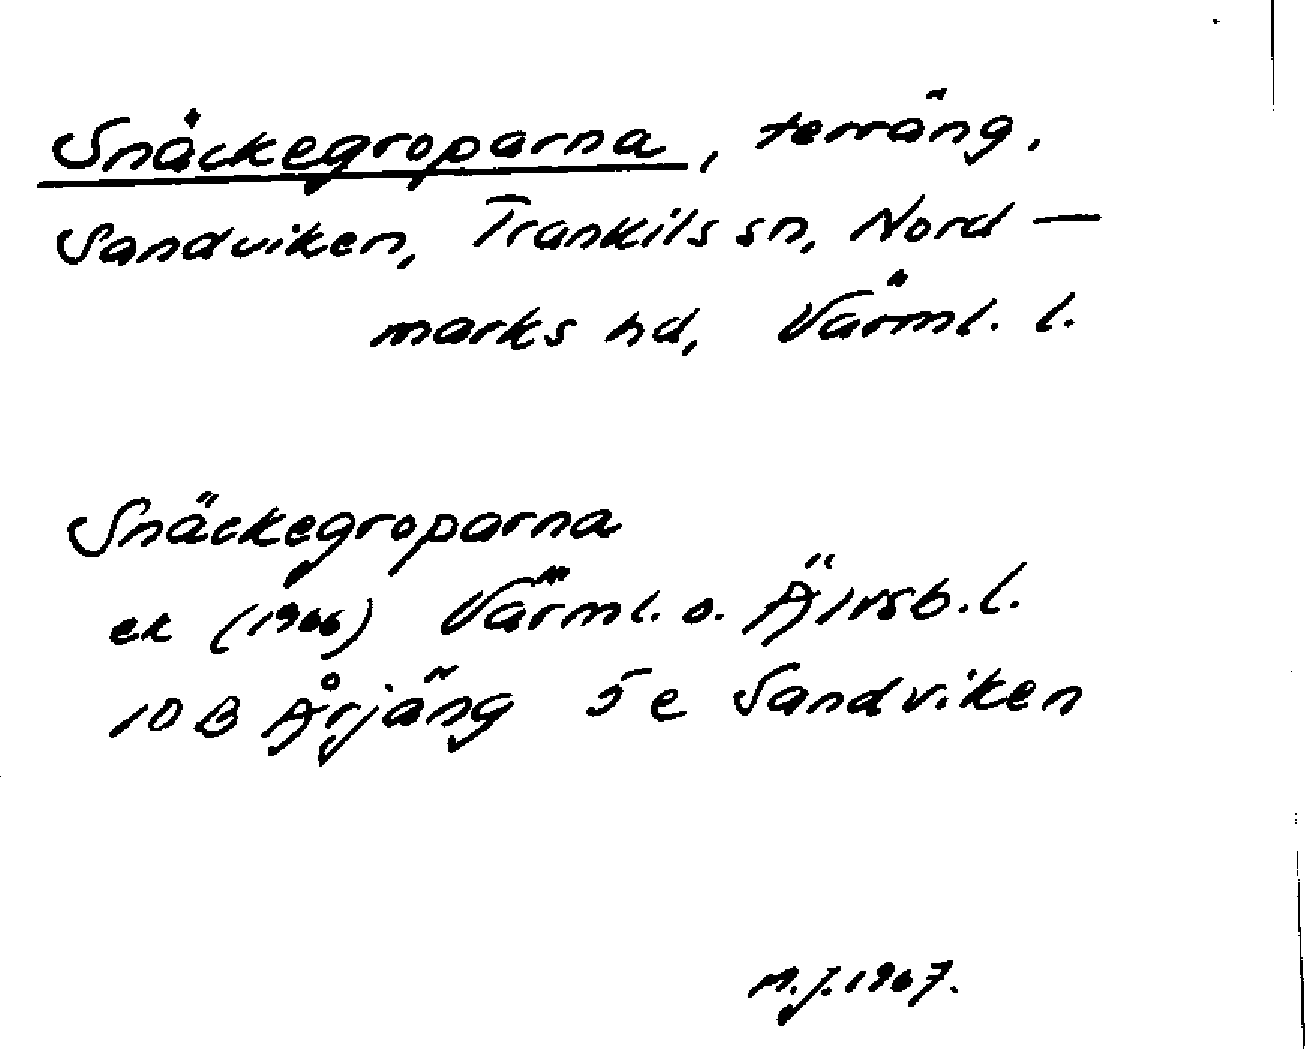 Snäckegroparna, terräng,
Sandviken, Trankils sn, Nord-
marks hd, Värml. l.
Snäckegroparna
ek (1966) Värml. o. Älvsb. l.
10 B Årjäng 5 e Sandviken
M.J. 1967.